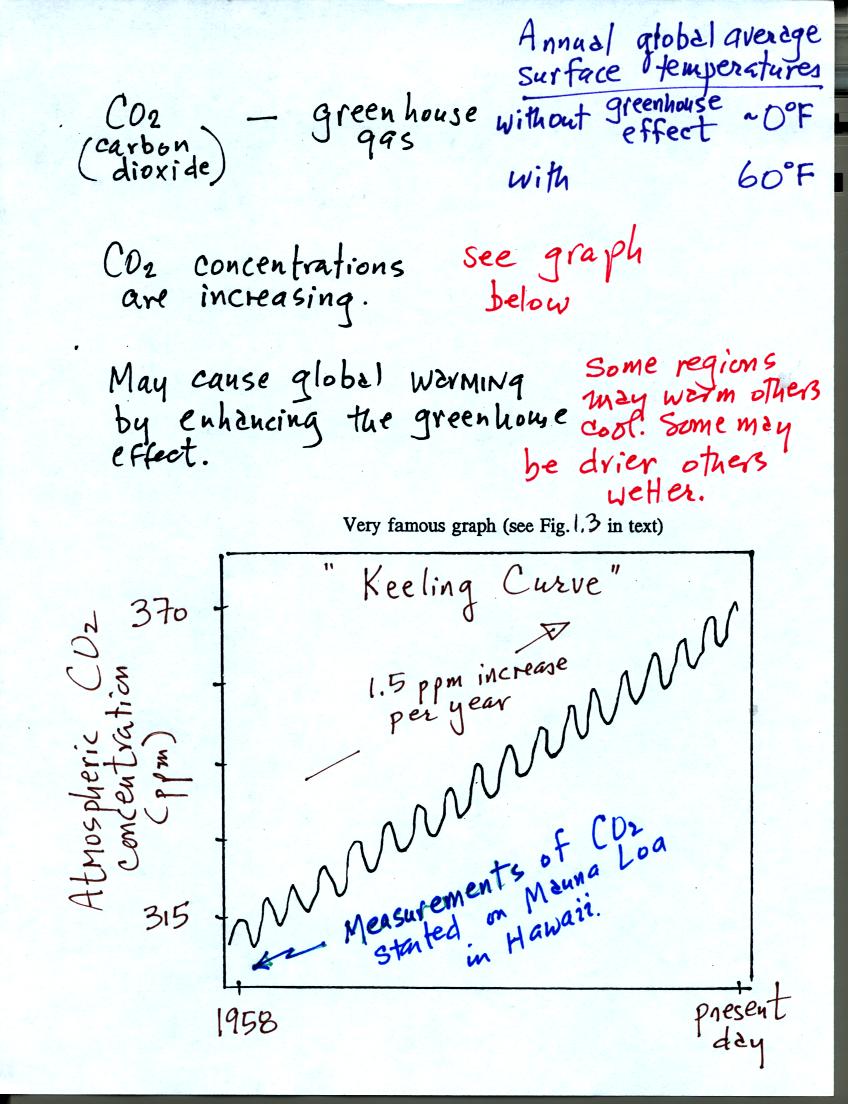 Annual global average
surface temperatures
CO2 — greenhouse
gas
(carbon
dioxide)
without greenhouse
effect ~0°F
with 60°F
CO2 concentrations
are increasing.
see graph
below
May cause global warming
by enhancing the greenhouse
effect.
Some regions
may warm others
cool. Some may
be drier others
wetter.
Very famous graph (see Fig. 1.3 in text)
"Keeling Curve"
1.5 ppm increase
per year
Atmospheric CO2
concentration
(ppm)
370
315
Measurements of CO2
started on Mauna Loa
in Hawaii.
1958
present
day